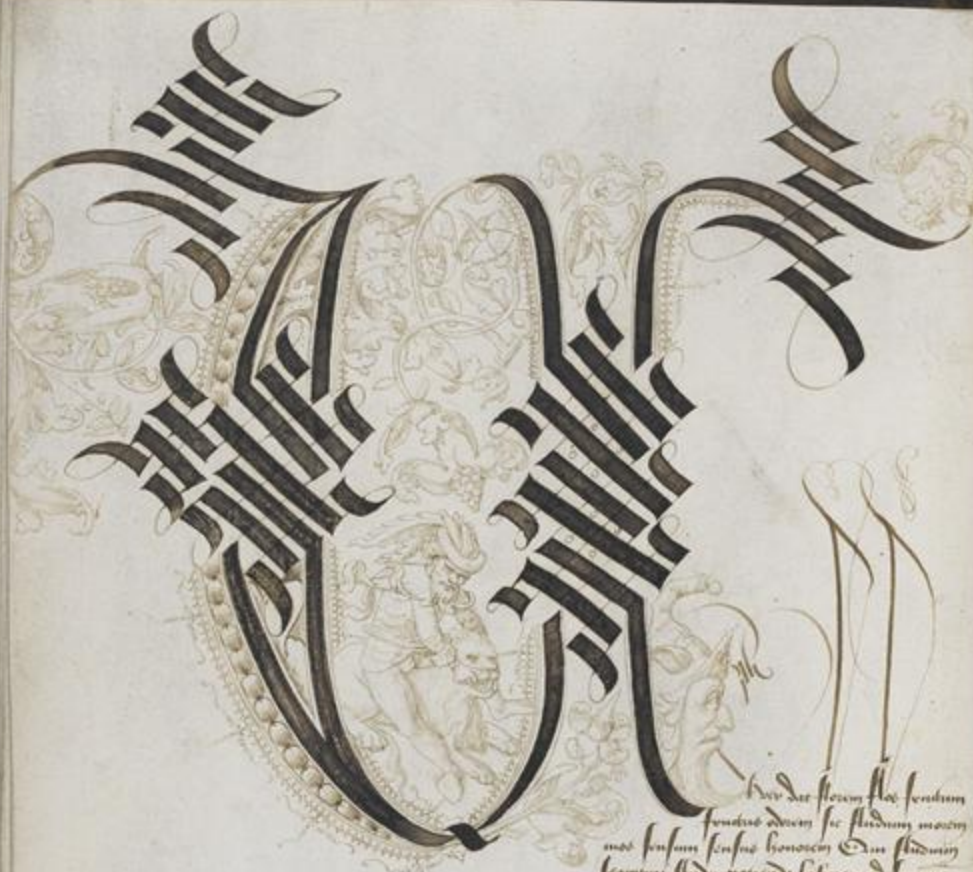 Ver dat florem flos fructum
fructus odorem sic studium morem
mos sensum sensus honorem Qui studium